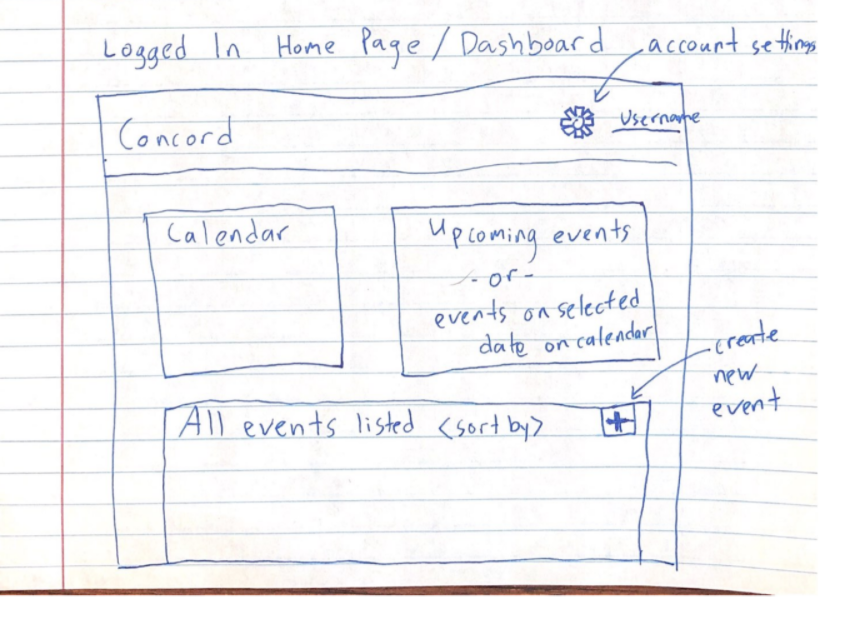 Logged In Home Page / Dashboard
account settings
Concord
Username
Calendar
Upcoming events
- or -
events on selected
date on calendar
create
new
event
All events listed <sort by>
+